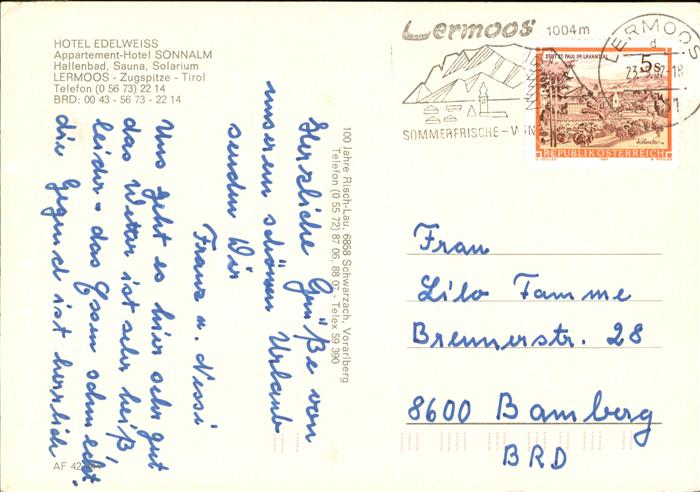 HOTEL EDELWEISS
Appartement-Hotel SONNALM
Hallenbad, Sauna, Solarium
LERMOOS - Zugspitze - Tirol
Telefon (0 56 73) 22 14
BRD: 00 43 - 56 73 - 22 14
Herzliche Grüße von
unserem schönen Urlaub
senden Wir
Franz u. Nessi
Uns geht es hier sehr gut
das Wetter ist sehr heiß
leider - das Essen schmeckt.
die Gegend ist herrlich
AF 42
100 Jahre Risch-Lau, 6858 Schwarzach, Vorarlberg
Telefon (0 55 72) 87 06, 88 07 - Telex 59 390
Lermoos 1004m
SOMMERFRISCHE - W
LERMOOS
d
STIFT ST. PAUL IM LAVANTAL
5s
REPUBLIK ÖSTERREICH
Frau
Lilo Famme
Brennerstr. 28
8600 Bamberg
BRD